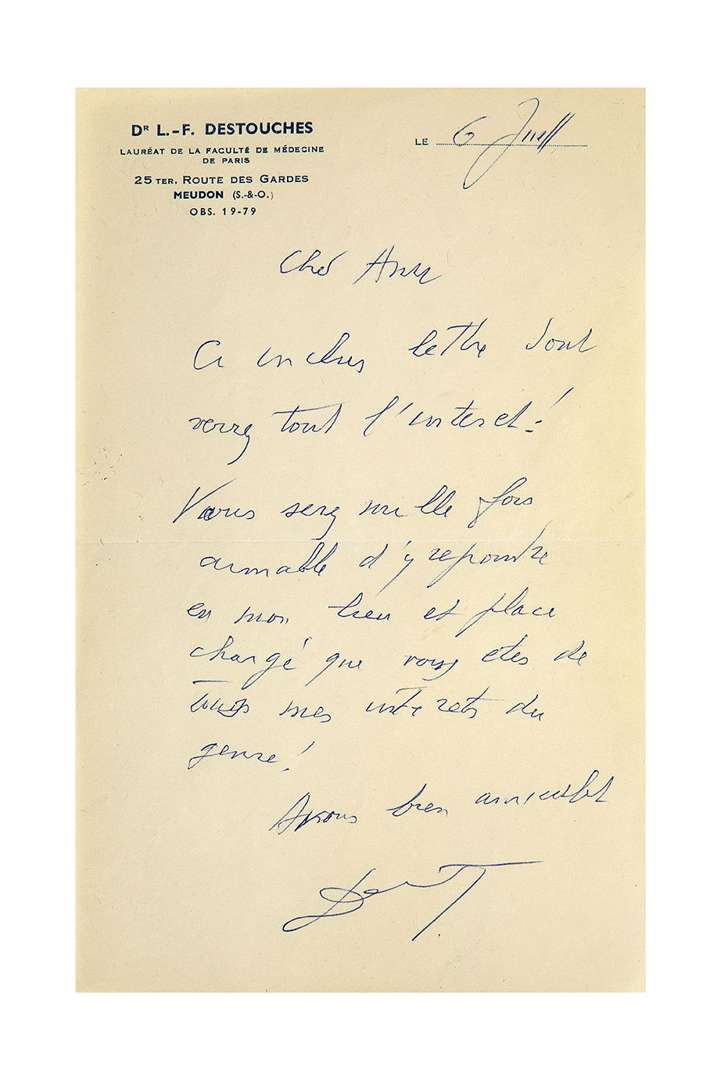 Dr L.-F. DESTOUCHES
LAURÉAT DE LA FACULTÉ DE MÉDECINE
DE PARIS
25 TER, ROUTE DES GARDES
MEUDON (S.-&-O.)
OBS. 19-79
LE 6 Juill
Cher Ami
Ci inclus lettre dont
verrez tout l'interet!
Vous serez mille fois
aimable d'y repondre
en mon lieu et place
chargé que vous etes de
tous mes interets du
genre!
A vous bien amicalt